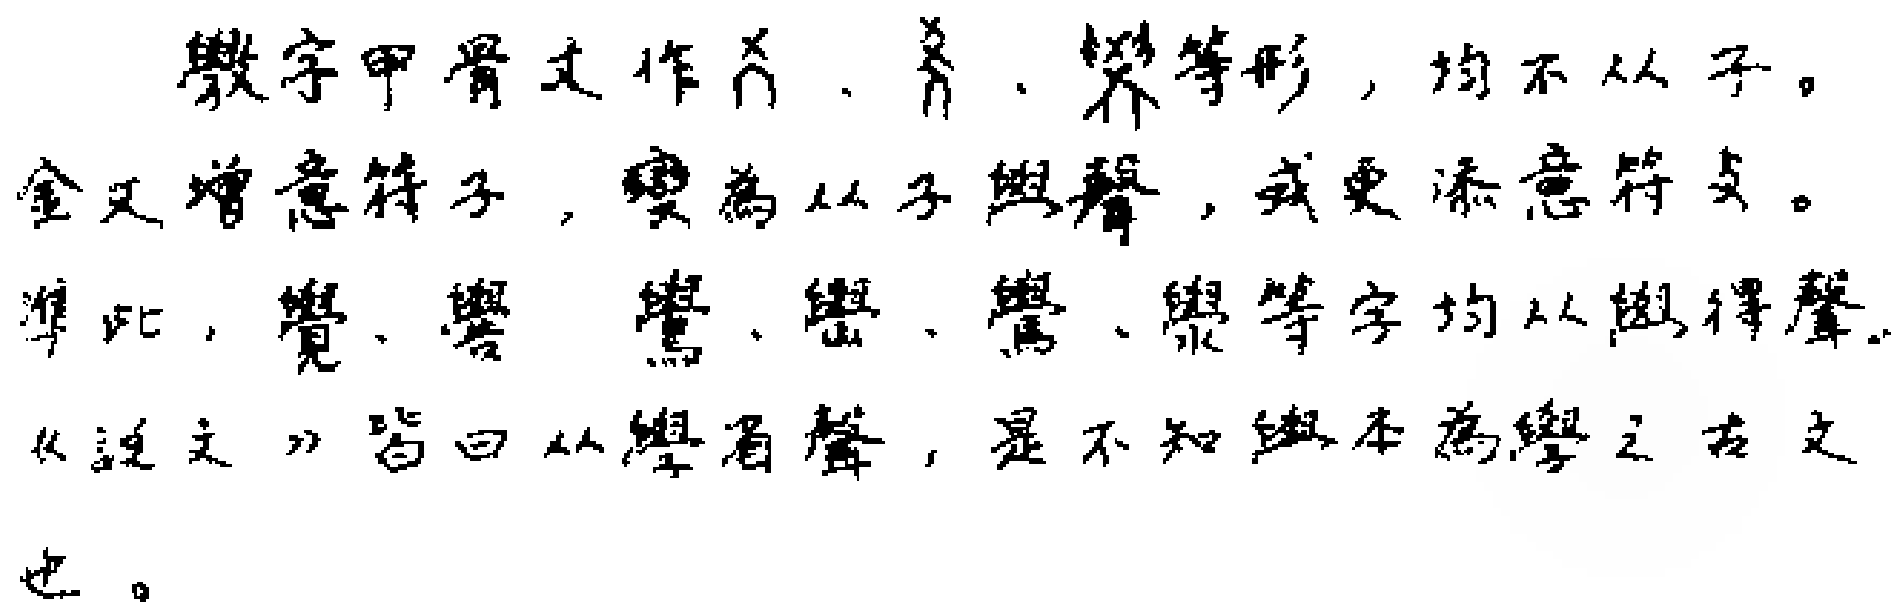 斆字甲骨文作、、等形，均不从子。
金文增意符子，變為从子𦥯聲，或更添意符攴。
準此，覺、嚳 鷽、嶨、鷽、澩等字均从𦥯得聲。
《說文》皆曰从學省聲，是不知𦥯本為學之古文
也。